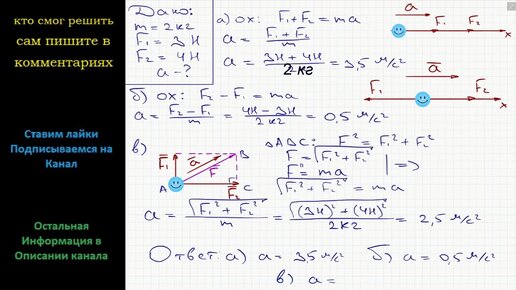 кто смог решить
сам пишите в
комментариях
Ставим лайки
Подписываемся на
Канал
Остальная
Информация в
Описании канала
Дано:
m = 2 кг
F₁ = 3 Н
F₂ = 4 Н
a - ?
а) ox: F₁ + F₂ = ma
a = (F₁ + F₂)/m
a = (3Н + 4Н)/2 кг = 3,5 м/с²
a
F₁ F₂ x
б) ox: F₂ - F₁ = ma
a = (F₂ - F₁)/m = (4Н - 3Н)/2 кг = 0,5 м/с²
a
F₁ F₂ x
в)
F₁ a F B
A F₂ C
△ABC: F² = F₁² + F₂²
F = √(F₁² + F₂²)
F = ma |=>
√(F₁² + F₂²) = ma
a = √(F₁² + F₂²)/m = √((3Н)² + (4Н)²)/2 кг = 2,5 м/с²
Ответ: а) a = 3,5 м/с² б) a = 0,5 м/с²
в) a =